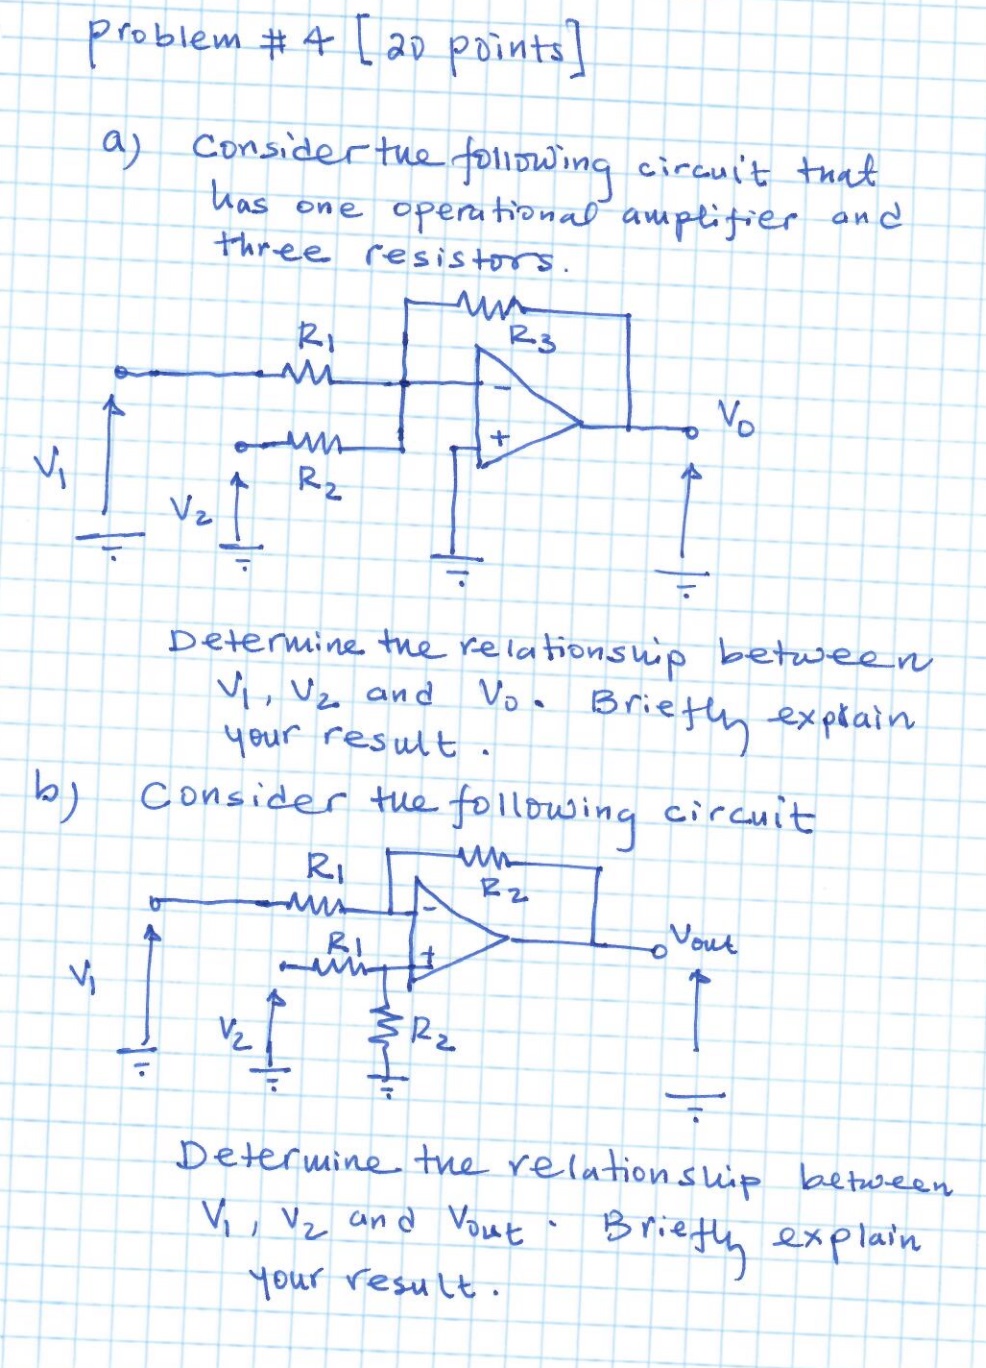 problem # 4 [20 points]
a) Consider the following circuit that
has one operational amplifier and
three resistors.
R3
R1
-
V0
+
R2
V1
V2
Determine the relationship between
V1, V2 and V0. Briefly explain
your result.
b) Consider the following circuit
R1
R2
-
Vout
R1
+
V1
V2
R2
Determine the relationship between
V1, V2 and Vout. Briefly explain
your result.